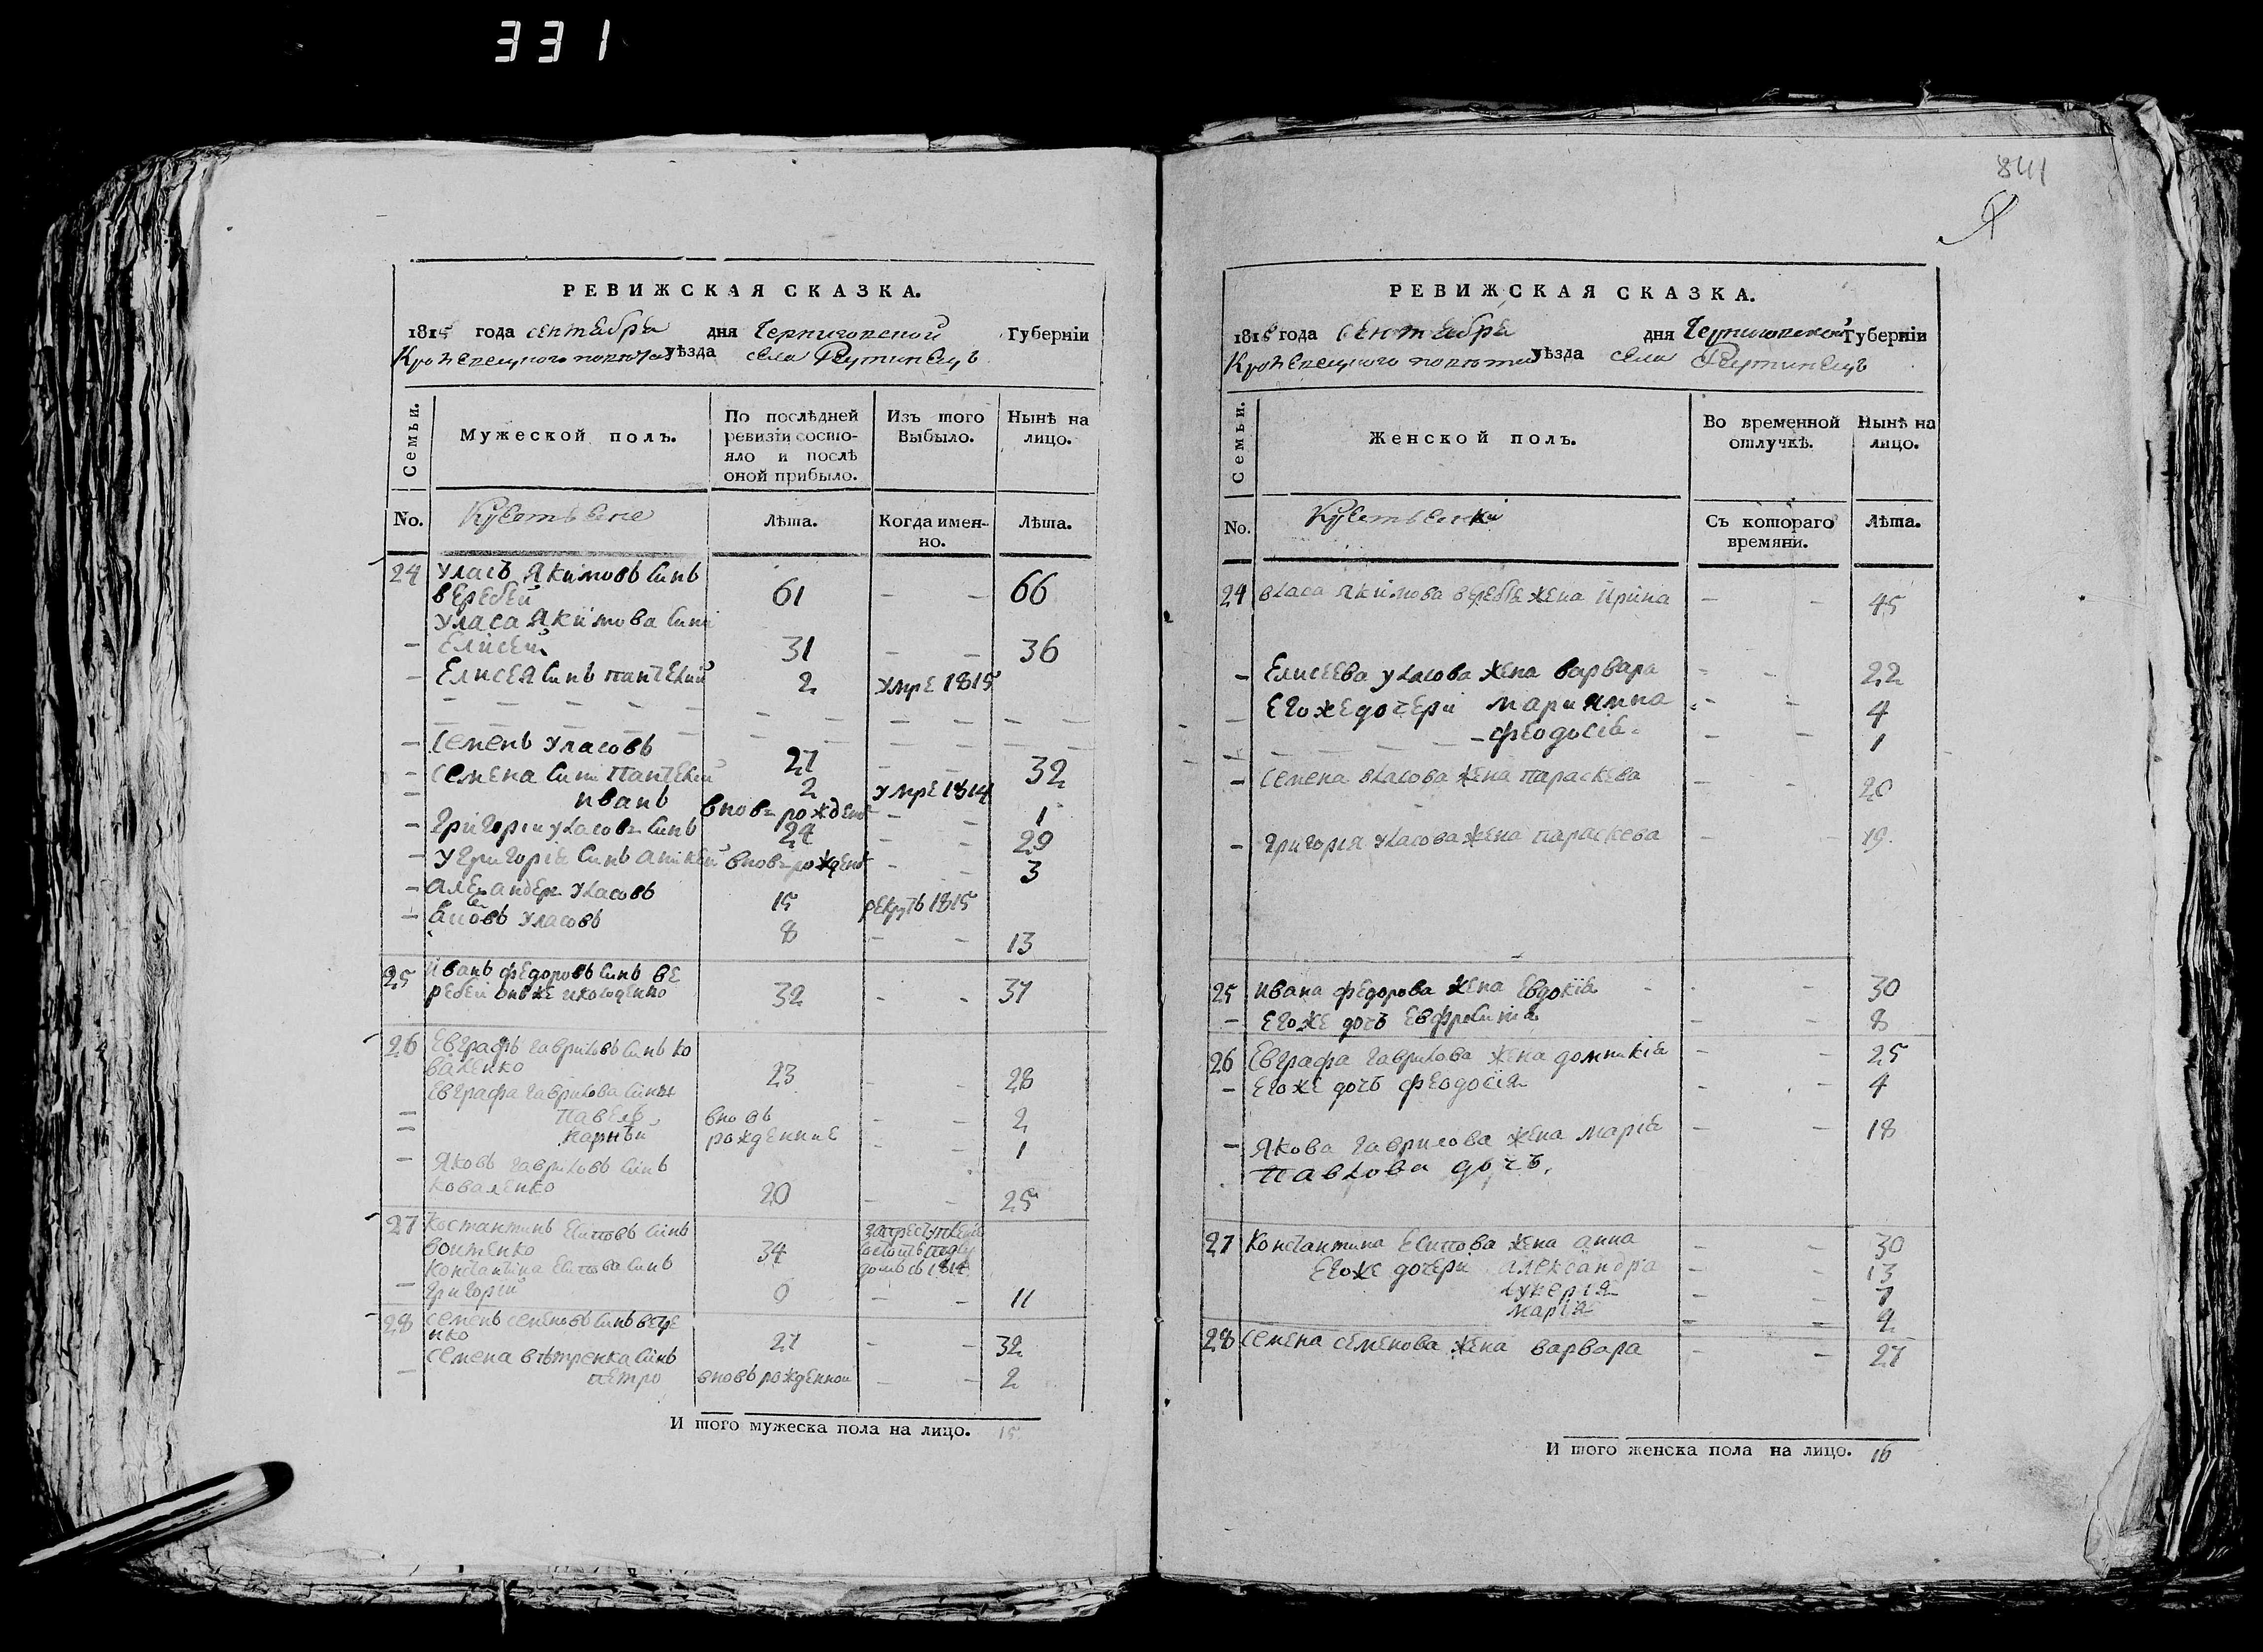 331
841
РЕВИЖСКАЯ СКАЗКА.
1815 года сентября дня Черниговской Губерніи
Кролевецкого повета уѣзда села Реутинецъ
Семьи.
Мужеской полъ.
По послѣдней ревизіи состояло и послѣ оной прибыло.
Изъ того Выбыло.
Нынѣ на лицо.
No.
Лѣта.
Когда именно.
Лѣта.
24 Уласъ Якимовъ синъ
веребей 61 — — 66
Уласа Якимова сини
— Елисей 31 — — 36
— Елисея синъ пантелий 2 умре 1815
— Семенъ Уласовъ 27 — — 32
— Семена сини Пантелий 2 умре 1814
— иванъ вновь рожденъ — — 1
— Григорій Уласовъ синъ 24 — — 29
— У Григорія синъ аникей вновь рожденъ — — 3
— Александеръ Уласовъ 15 рекрутъ 1815
— Уласовъ 8 — — 13
25 Иванъ Федоровъ синъ ве
ребей онъ же 32 - - 37
26 Евграфъ Гавриловъ синъ ко
валенко 23 — — 28
Евграфа Гаврилова сини
— Павелъ вновь — — 2
— Карнѣй рожденние — — 1
— Яковъ Гавриловъ синъ
коваленко 20 — — 25
27 Костантинъ Есиповъ синъ
войтенко 34
Константина Есипова синъ
— Григорій 6 — — 11
28 Семенъ Семеновъ синъ ветре
нко 27 — — 32
Семена вѣтренка синъ
— петро вновь рожденной — — 2
И того мужеска пола на лицо. 15
РЕВИЖСКАЯ СКАЗКА.
1815 года сентября дня Черниговской Губерніи
Кролевецкого повета уѣзда села Реутинецъ
Семьи.
Женской полъ.
Во временной отлучкѣ.
Нынѣ на лицо.
No.
Съ котораго времяни.
Лѣта.
24 Власа Якимова веребья жена Ирина — — 45
— Елисеева Уласова жена варвара — — 22
— Его же дочери мариямна — — 4
— феодосія — — 1
— Семена Власова жена параскева — — 20
— Григорія Уласова жена параскева — — 19
25 Ивана Федорова жена Евдокія - - - 30
— Его же дочъ Евфросина — — 8
26 Евграфа Гаврилова жена домникія — — 25
— Его же дочъ феодосія — — 4
— Якова Гаврилова жена марія — — 18
Павлова дочъ.
27 Константина Есипова жена анна — — 30
Его же дочери александра — — 13
лукерія — — 7
марія — — 2
28 Семена семенова жена варвара — — 27
И того женска пола на лицо. 16